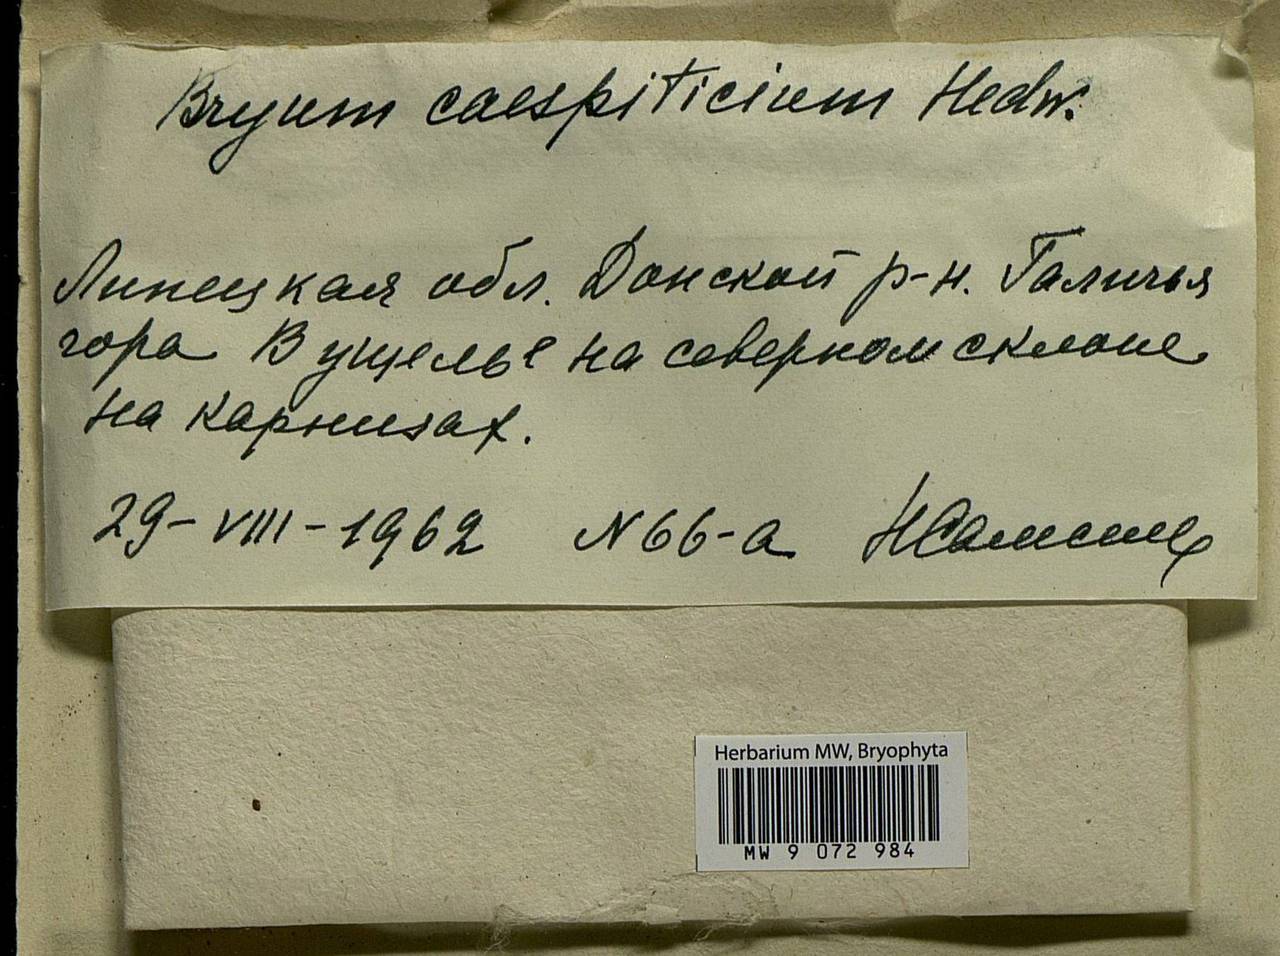 Bryum caespiticium Hedw.
Липецкая обл. Донской р-н. Галичья
гора В ущелье на северном склоне
на карнизах.
29-VIII-1962 N 66-a
Herbarium MW, Bryophyta
MW 9 072 984